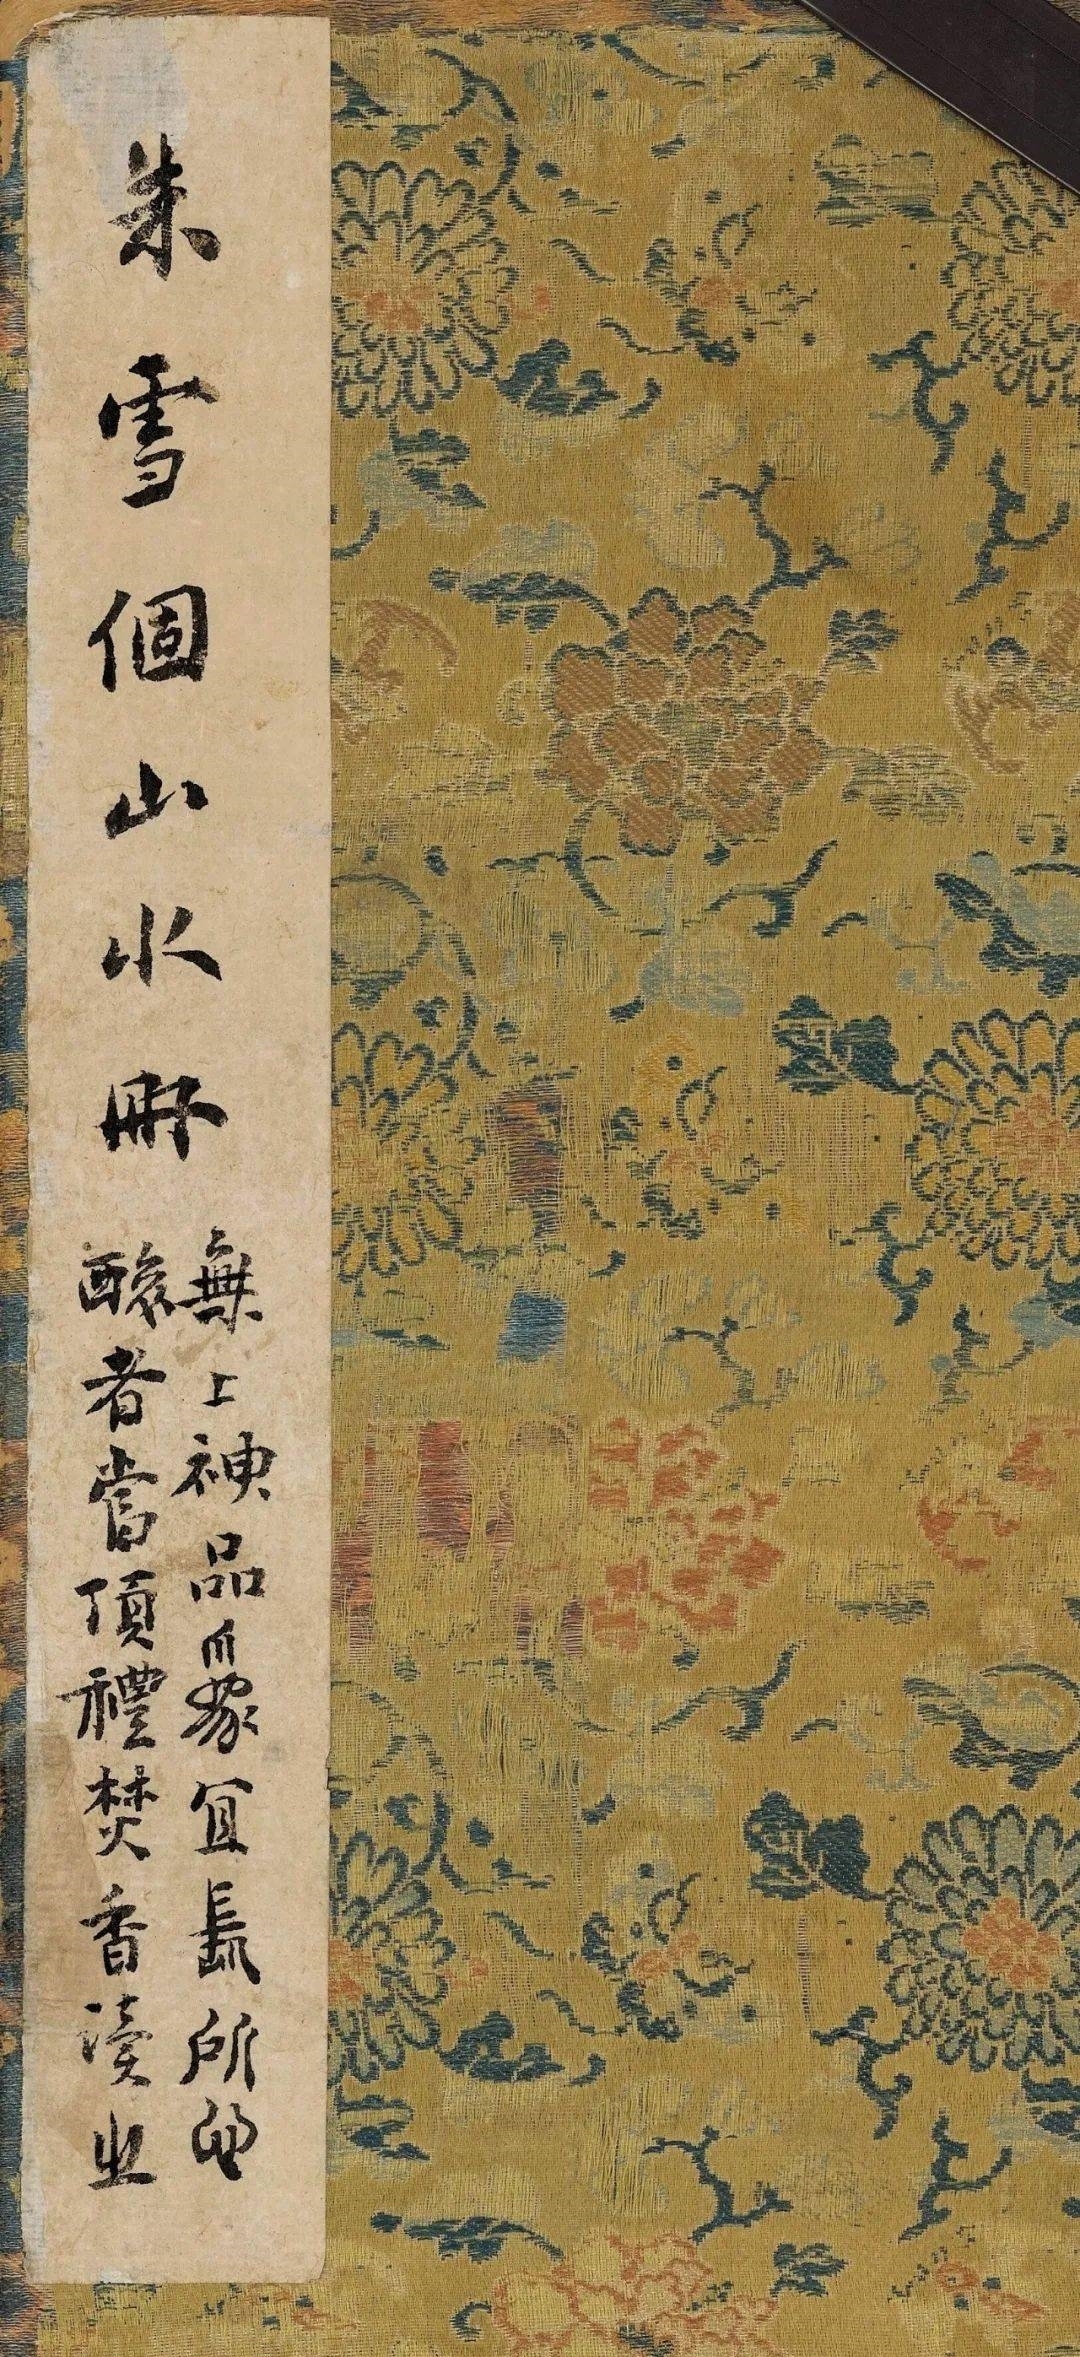 朱雪個山水冊
無上神品宜所
者當頂禮焚香讀之